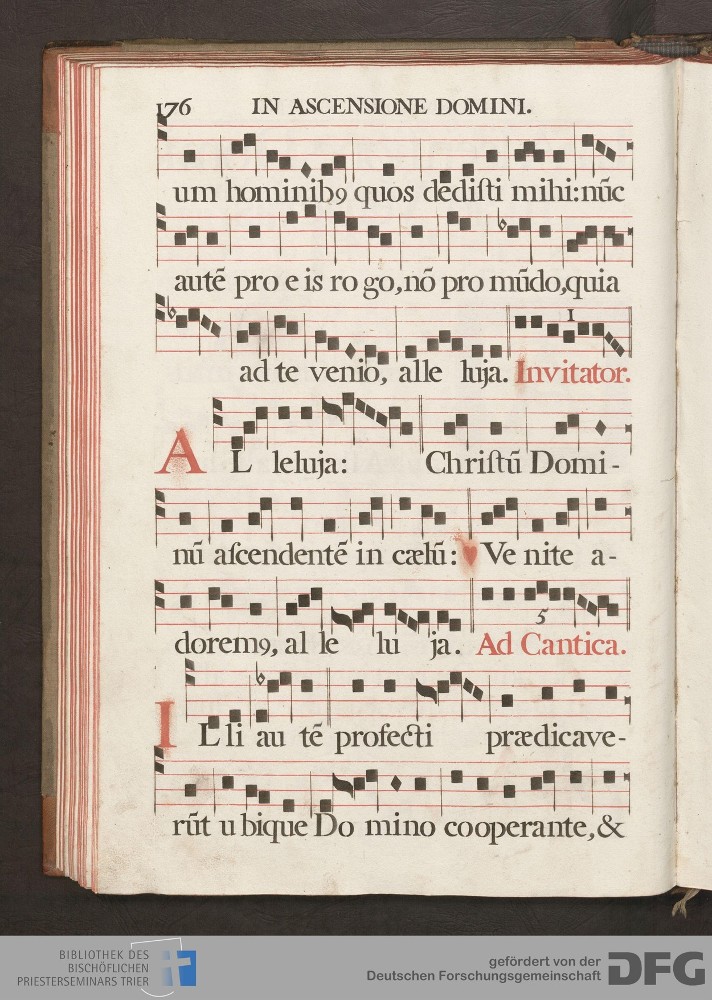 176 IN ASCENSIONE DOMINI.
um hominibꝯ quos dediſti mihi:nūc
autē pro e is ro go,nō pro mūdo,quia
1
ad te venio, alle luja. Invitator.
AL leluja: Chriſtū Domi-
nū aſcendentē in cælū: Ve nite a-
5
doremꝯ, al le lu ja. Ad Cantica.
ILli au tē profecti prædicave-
rūt u bique Do mino cooperante,&
BIBLIOTHEK DES
BISCHÖFLICHEN
PRIESTERSEMINARS TRIER
gefördert von der
Deutschen Forschungsgemeinschaft DFG